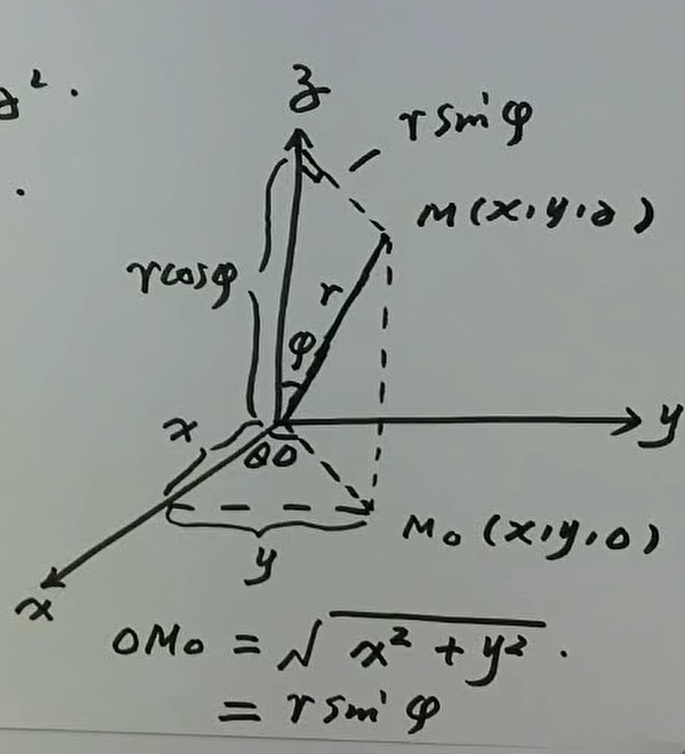 z².
z
r sin φ
M(x,y,z)
r cos φ
r
φ
x
θ O
y
y
M₀ (x,y,0)
x
OM₀ = √x² + y² .
= r sin φ